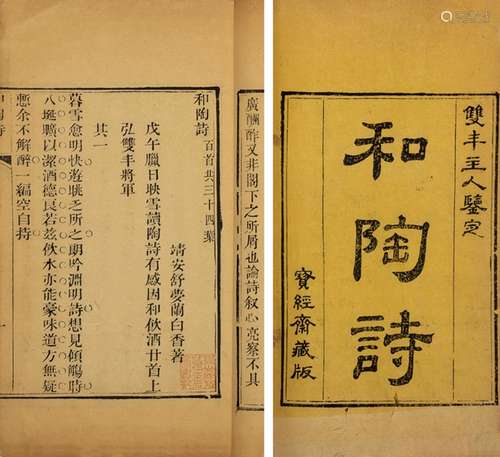 雙丰主人鑒定
和陶詩
寶經齋藏版
廣酬酢又非閣下之所屑也論詩叙心亮察不具
和陶詩 百首共三十四葉
靖安舒夢蘭白香著
戊午臘日映雪讀陶詩有感因和飲酒廿首上
弘雙丰將軍
其一
暮雪愈明快遊眺之所之朗吟淵明詩想見傾觴時
八埏曠以潔酒德良若茲飲水亦能豪味道方無疑
慙余不解醉一編空自持